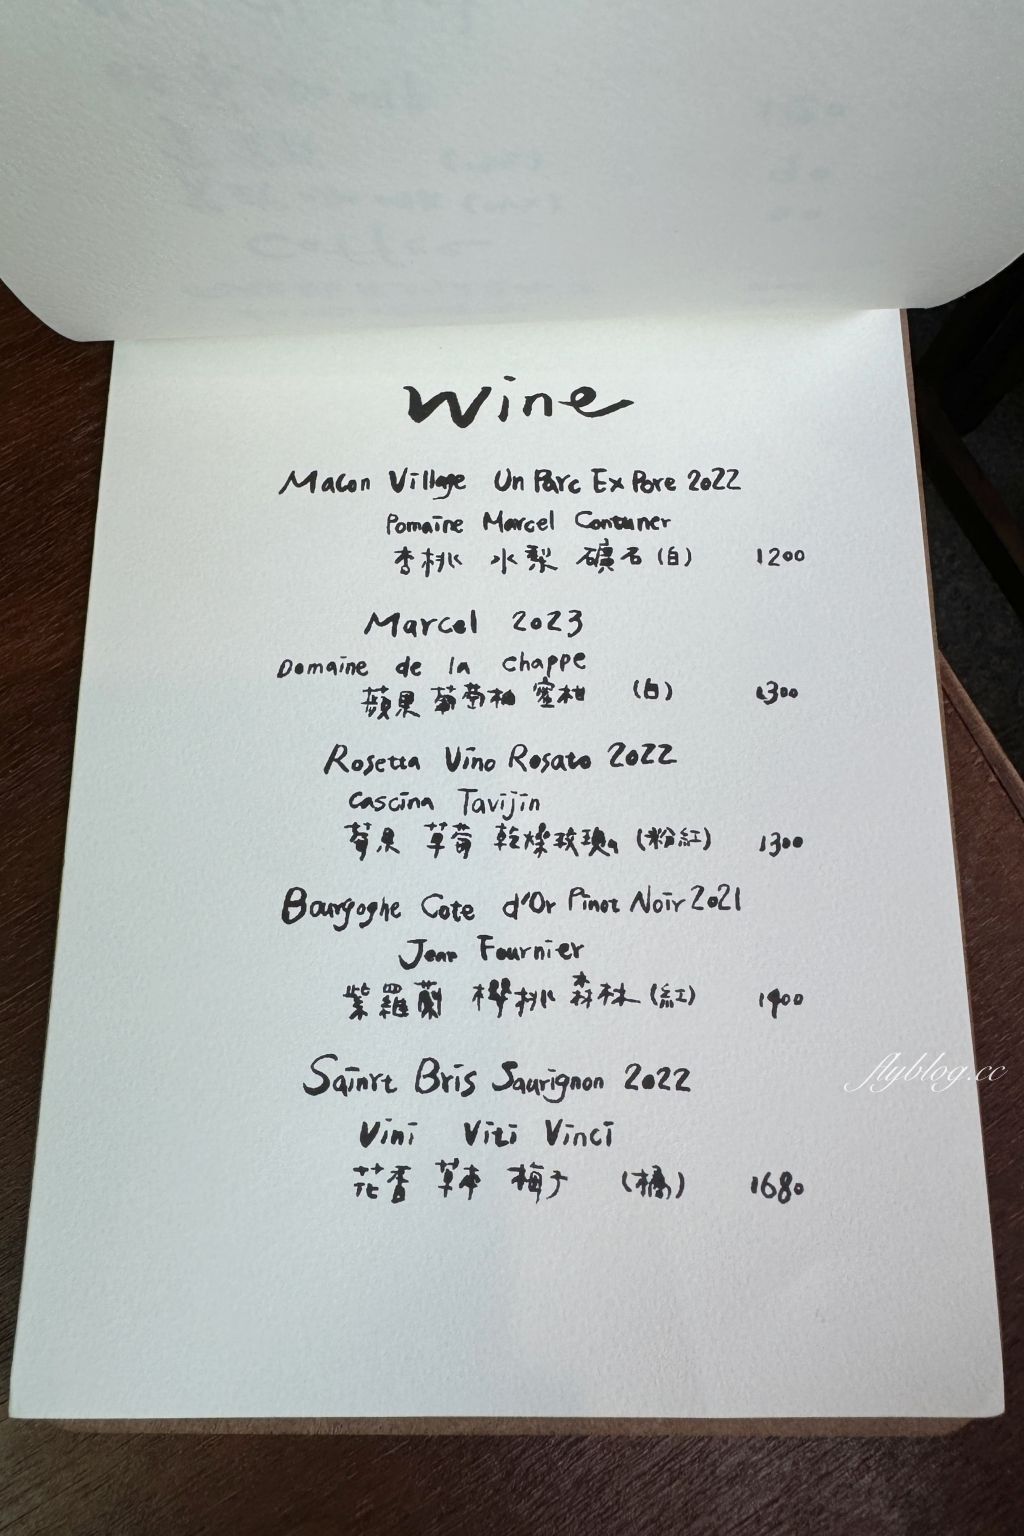 Wine
Macon Village Un Parc Ex Pore 2022
Pomaine Marcel Contuner
杏桃 水梨 礦石 (白) 1200
Marcel 2023
Domaine de la chappe
蘋果 葡萄柚 蜜柑 (白) 1300
Rosetta Vino Rosato 2022
Cascina Tavijin
莓果 草莓 乾燥玫瑰 (粉紅) 1300
Bourgoghe Cote d'Or Pinot Noir 2021
Jean Fournier
紫羅蘭 櫻桃 森林 (紅) 1900
Sainrt Bris Sauvignon 2022
Vini Viti Vinci
花香 草本 梅子 (橘) 1680
flyblog.cc